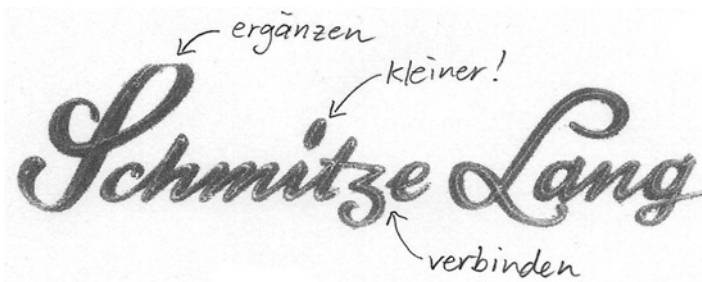 ergänzen
kleiner!
Schmitze Lang
verbinden